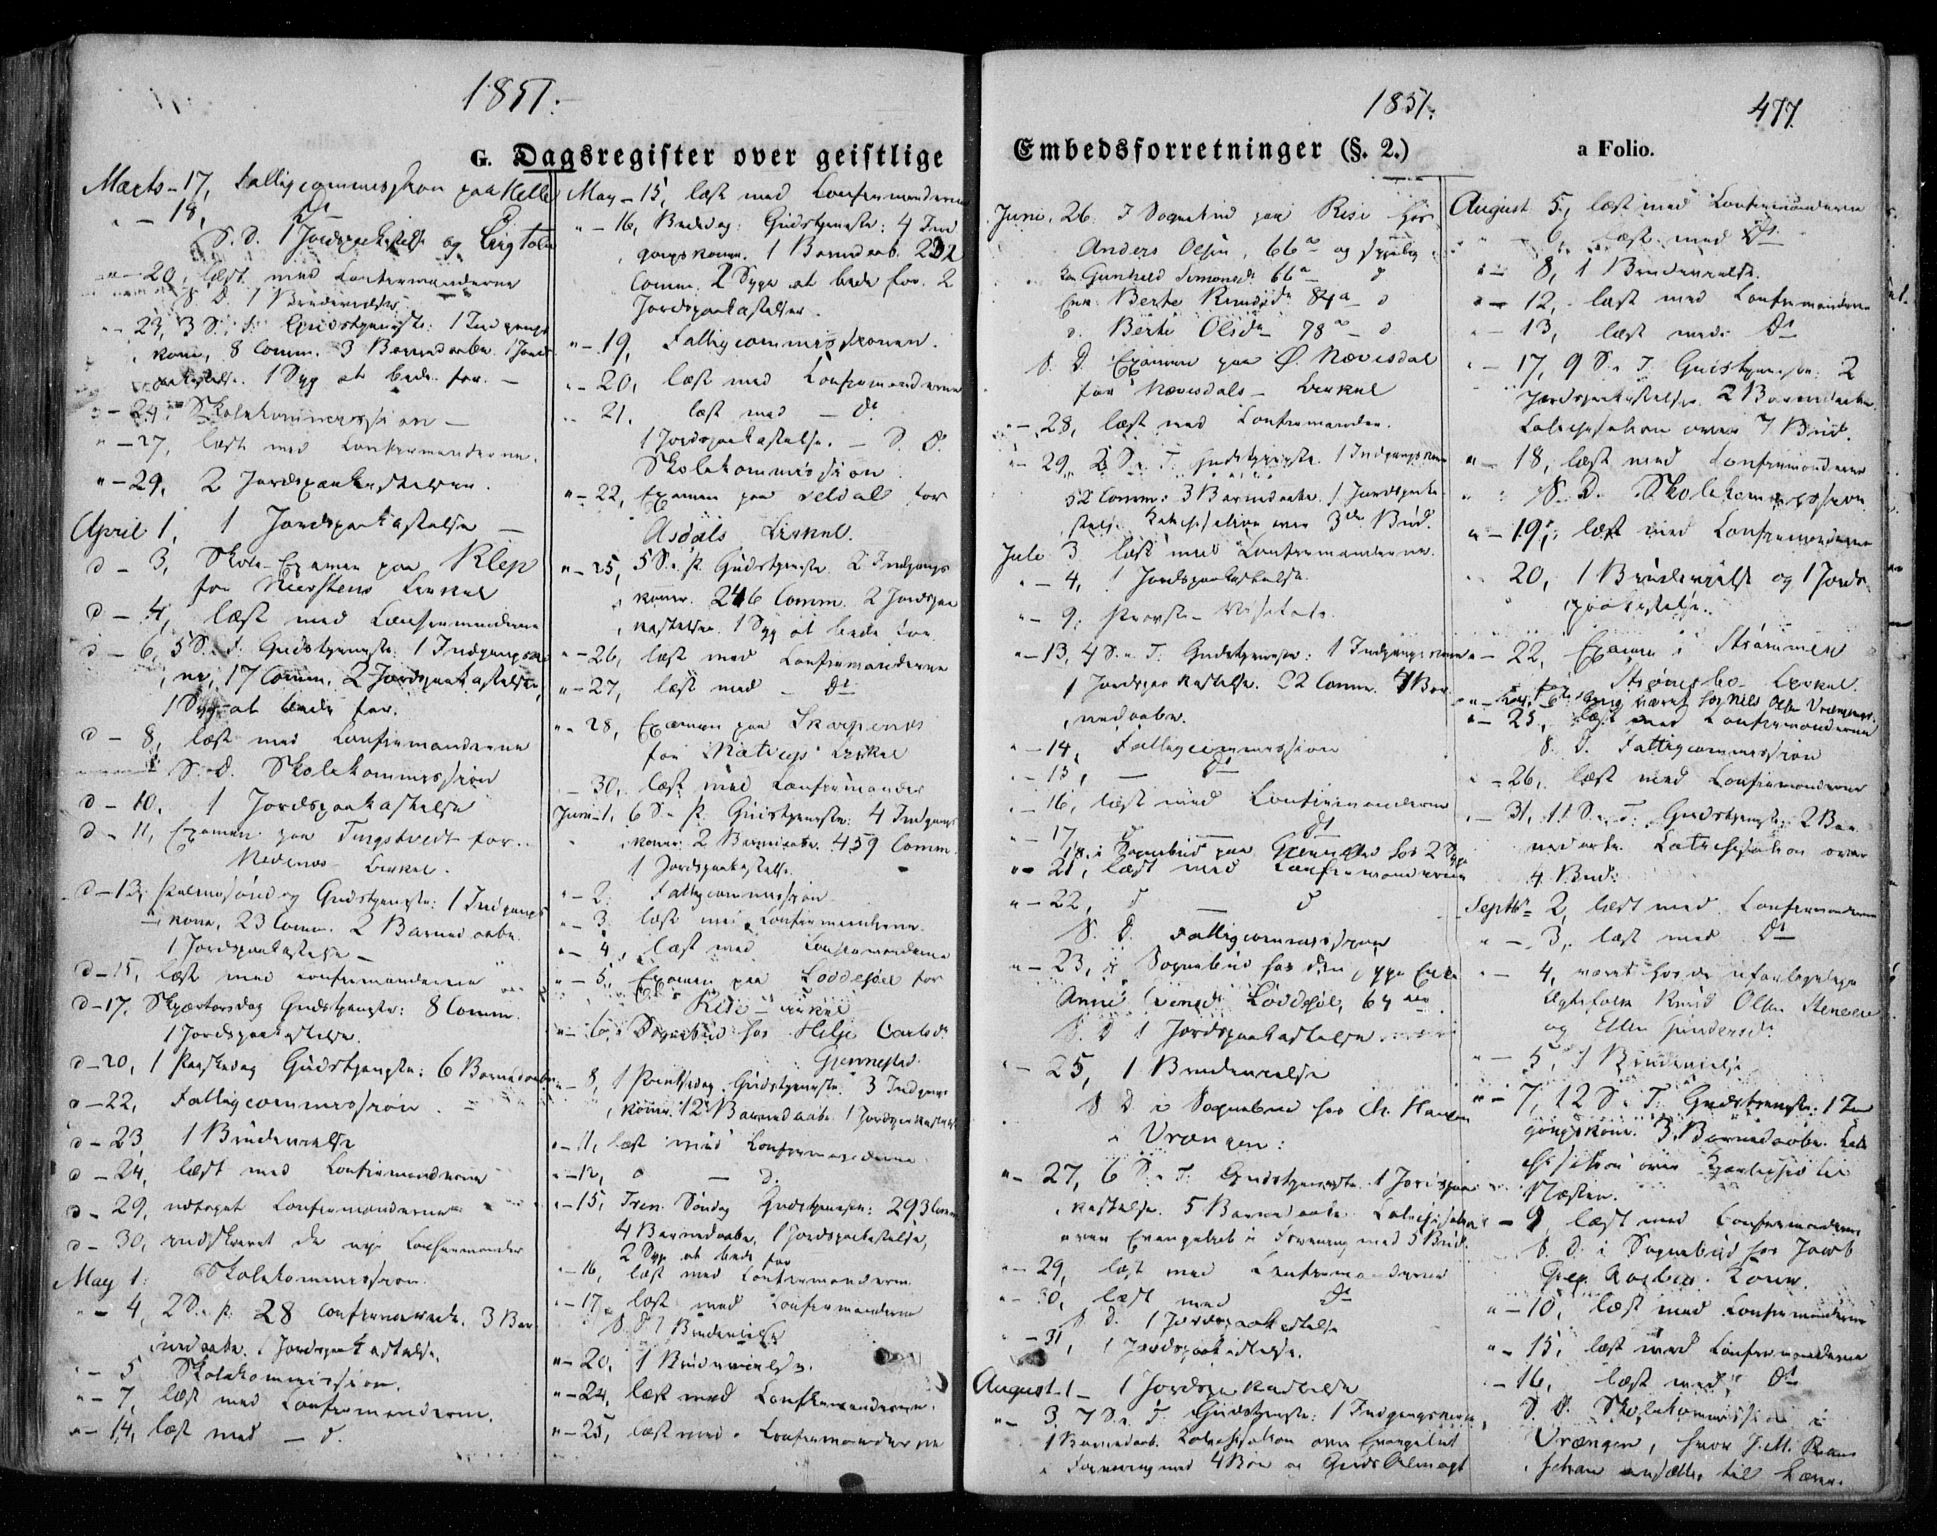 1851.
G. Dagsregister over geistlige
Marts - 17, Fattigcommission paa Helle
" - 18, dt
S. D. 1 Jordpaakastelse og
" - 20, læst med Confirmanderne
S. D. 1 Brudevielse
" - 23, 3 S. i F. Gudstjeneste: 1 Indgangs
kone, 8 Comm. 3 Barnedaabe. 1 Jord
paakastelse. 1 Syg at bede for. -
" - 24, Skolekommission -
" - 27, læst med Confirmanderne.
" - 29, 2 Jordspaakastelser.
April 1, 1 Jordspaakastelse -
d - 3, Skole-Examen paa Klep
for Nierstens Cirkel
d - 4, læst med Confirmanderne
d - 6, 5 S. i F. Gudstjeneste: 1 Indgangsko
ne, 17 Comm. 2 Jordspaakastelser,
1 Syg at bede for.
d - 8, læst med Confirmanderne
S. D. Skolekommission
d - 10, 1 Jordspaakastelse
d - 11, Examen paa Tingstvedt for
Nedenes Cirkel.
d - 13, Palmesøndag Gudstjeneste: 1 Indgangs
kone, 23 Comm. 2 Barnedaabe.
1 Jordspaakastelse -
d - 15, læst med confirmanderne
d - 17, Skjærtorsdag Gudstjeneste: 8 Comm.
1 Jordspaakastelse.
d - 20, 1 Paaskedag Gudstjeneste: 6 Barnedaabe
d - 22, Fattigcommission.
d - 23, 1 Brudevielse
d - 24, læst med Confirmanderne
d - 29, udtaget Confirmanderne
d - 30, indskrevet de nye Confirmander
May 1. Skolekommission.
" - 4, 2 S. e. P. 28 confirmerede. 3 Bar
nedaabe. 1 Jordspaakastelse.
" - 5 Skolekommission.
" - 7, læst med Confirmanderne.
" - 14, læst med - d.
May - 15, læst med Confirmanderne
" - 16, Bededag: Gudstjeneste: 4 Ind
gangskoner. 1 Barnedaab. 232
Comm. 2 Syge at bede for. 2
Jordspaakastelser.
" - 19, Fattigcommissionen.
" - 20, læst med Confirmanderne
" 21, læst med - dt
1 Jordspaakastelse. - S. D.
Skolekommission
" - 22, Examen paa Seldal for
Asdals Cirkel.
" - 25, 5 S. e. P. Gudstjeneste. 2 Indgangs
koner. 246 Comm. 2 Jordspaa
kastelser. 1 Syg at bede for.
" - 26, læst med Confirmanderne
" - 27, læst med - dt
" - 28, Examen paa Skarpenes
for Natvigs Cirkel
- 30, læst med Confirmander
Juni - 1, 6 S. e. P. Gudstjeneste: 4 Indgangs
koner. 2 Barnedaabe. 459 Comm.
1 Jordspaakastelse.
" - 2, Fattigcommission
" - 3, læst med Confirmanderne.
" - 4, læst med Confirmanderne
" - 5, Examen paa Løddesøl for
Rise - Cirkel
" - 6, Sognebud hos Helje Carlsdr
Gjennestad
" - 8, 1 Pintsedag. Gudstjeneste. 3 Indgangs
koner. 12 Barnedaabe. 1 Jordspaakastelse
" - 11, læst med Confirmanderne
" - 12, d - d.
" - 15, Tren. Søndag Gudstjeneste: 293 Comm.
4 Barnedaabe, 1 Jordspaakastelse,
2 Syge at bede for
" - 16, læst med Confirmanderne.
" - 17, læst med Confirmanderne
S. D. 1 Brudevielse
" - 20, 1 Brudevielse.
" - 24, læst med Confirmanderne.
" - 25, læst med Confirmanderne
1851. 477
Embedsforretninger (§. 2.) a Folio.
Juni, 26. I Sognebud paa Rise hos
Anders Olsen, 66 a og sygelig
Gunhild Simonsdr. 66 a - d
Enke Berte Knudsdr 84 a - d
d. Berte Olsdr - 78 a - d
S. D. Examen paa Ø. Nævesdal
for Nævesdals - Cirkel
" - 28, læst med Confirmander.
" - 29, 2 S. e. T. Gudstjeneste. 1 Indgangskone
52 Comm: 3 Barnedaabe. 1 Jordspaaka
stelse. Katechisation over 3die Bud.
Juli 3 læst med Confirmanderne.
" - 4, 1 Jordspaakastelse.
" - 9, Provste - Visitats.
" - 13, 4 S. e. T. Gudstjeneste: 1 Indgangskone
1 Jordspaakastelse. 22 Comm. 4 Bar
nedaabe.
" - 14, Fattigcommission
" - 15, - dt
" - 16, læst med Confirmanderne
" - 17, - dt
18, i Sognebud paa hos 2 Syge
" - 21, læst med Confirmanderne
" - 22, d - d
S. D. Fattigcommission
" - 23, i Sognebud hos den syge Enke
Anne Løddesøl, 64 aar
S. D 1 Jordspaakastelse
- 25, 1 Brudevielse
S D i Sognebud hos Ch. Hansen
Vrængen:
" - 27, 6 S. e. T. Gudstjeneste. 1 Jordspaa
kastelse. 5 Barnedaabe. Catechisation
over Evangeliet i Forening med 5 Bud.
- 29, læst med Confirmanderne
" - 30, læst med dt
S. D. 1 Jordspaakastelse
- 31, 1 Jordspaakastelse.
August - 1 - 1 Jordspaakastelse
" - 3. 7 S. e. T. Gudstjeneste: 1 Indgangskone,
1 Barnedaab. Catechisation over Evangeliet
i Forening med 4 Bøn og Guds Almagt
August 5, læst med Confirmanderne
" 6, læst med dt
" - 8, 1 Brudevielse.
" - 12, læst med Confirmanderne
- 13, læst med dt
- 17, 9 S. e. T. Gudstjeneste. 2
Jordspaakastelser. 2 Barnedaabe.
Catechisation over 7 Bud.
" - 18, læst med Confirmanderne
S. D. Skolekommission
" - 19, læst med Confirmanderne
20, 1 Brudevielse og 1 Jords
paakastelse.
" - 22, Examen i Strømmen
Strømsbo - Cirkel.
været hos Nils Olsen Vrængen.
" - 25, læst med Confirmanderne
S. D. Fattigcommission
" - 26, læst med Confirmanderne
" - 31, 11 S. e. T. Gudstjeneste. 2 Bar
nedaabe. Catechisation over
4 Bud:
Septbr 2, læst med Confirmanderne
" - 3, læst med dt
" - 4, været hos de uforligelige
Ægtefolk Knud Olsen
og Ellen Gundersdr
" - 5, 1 Brudevielse
" - 7, 12 S. e. T. Gudstjeneste: 1 Ind
gangskone. 3 Barnedaabe. Cate
chisation over Kjærlighed til
Næsten.
- 9, læst med Confirmanderne
S. D. i Sognebud hos Jacob
Kone.
" - 10, læst med Confirmanderne
" - 15, læst med Confirmanderne
- 16, læst med dt
S. D. Skolekommission i
Vrængen, hvor J. M.
ansættes til Lærer.